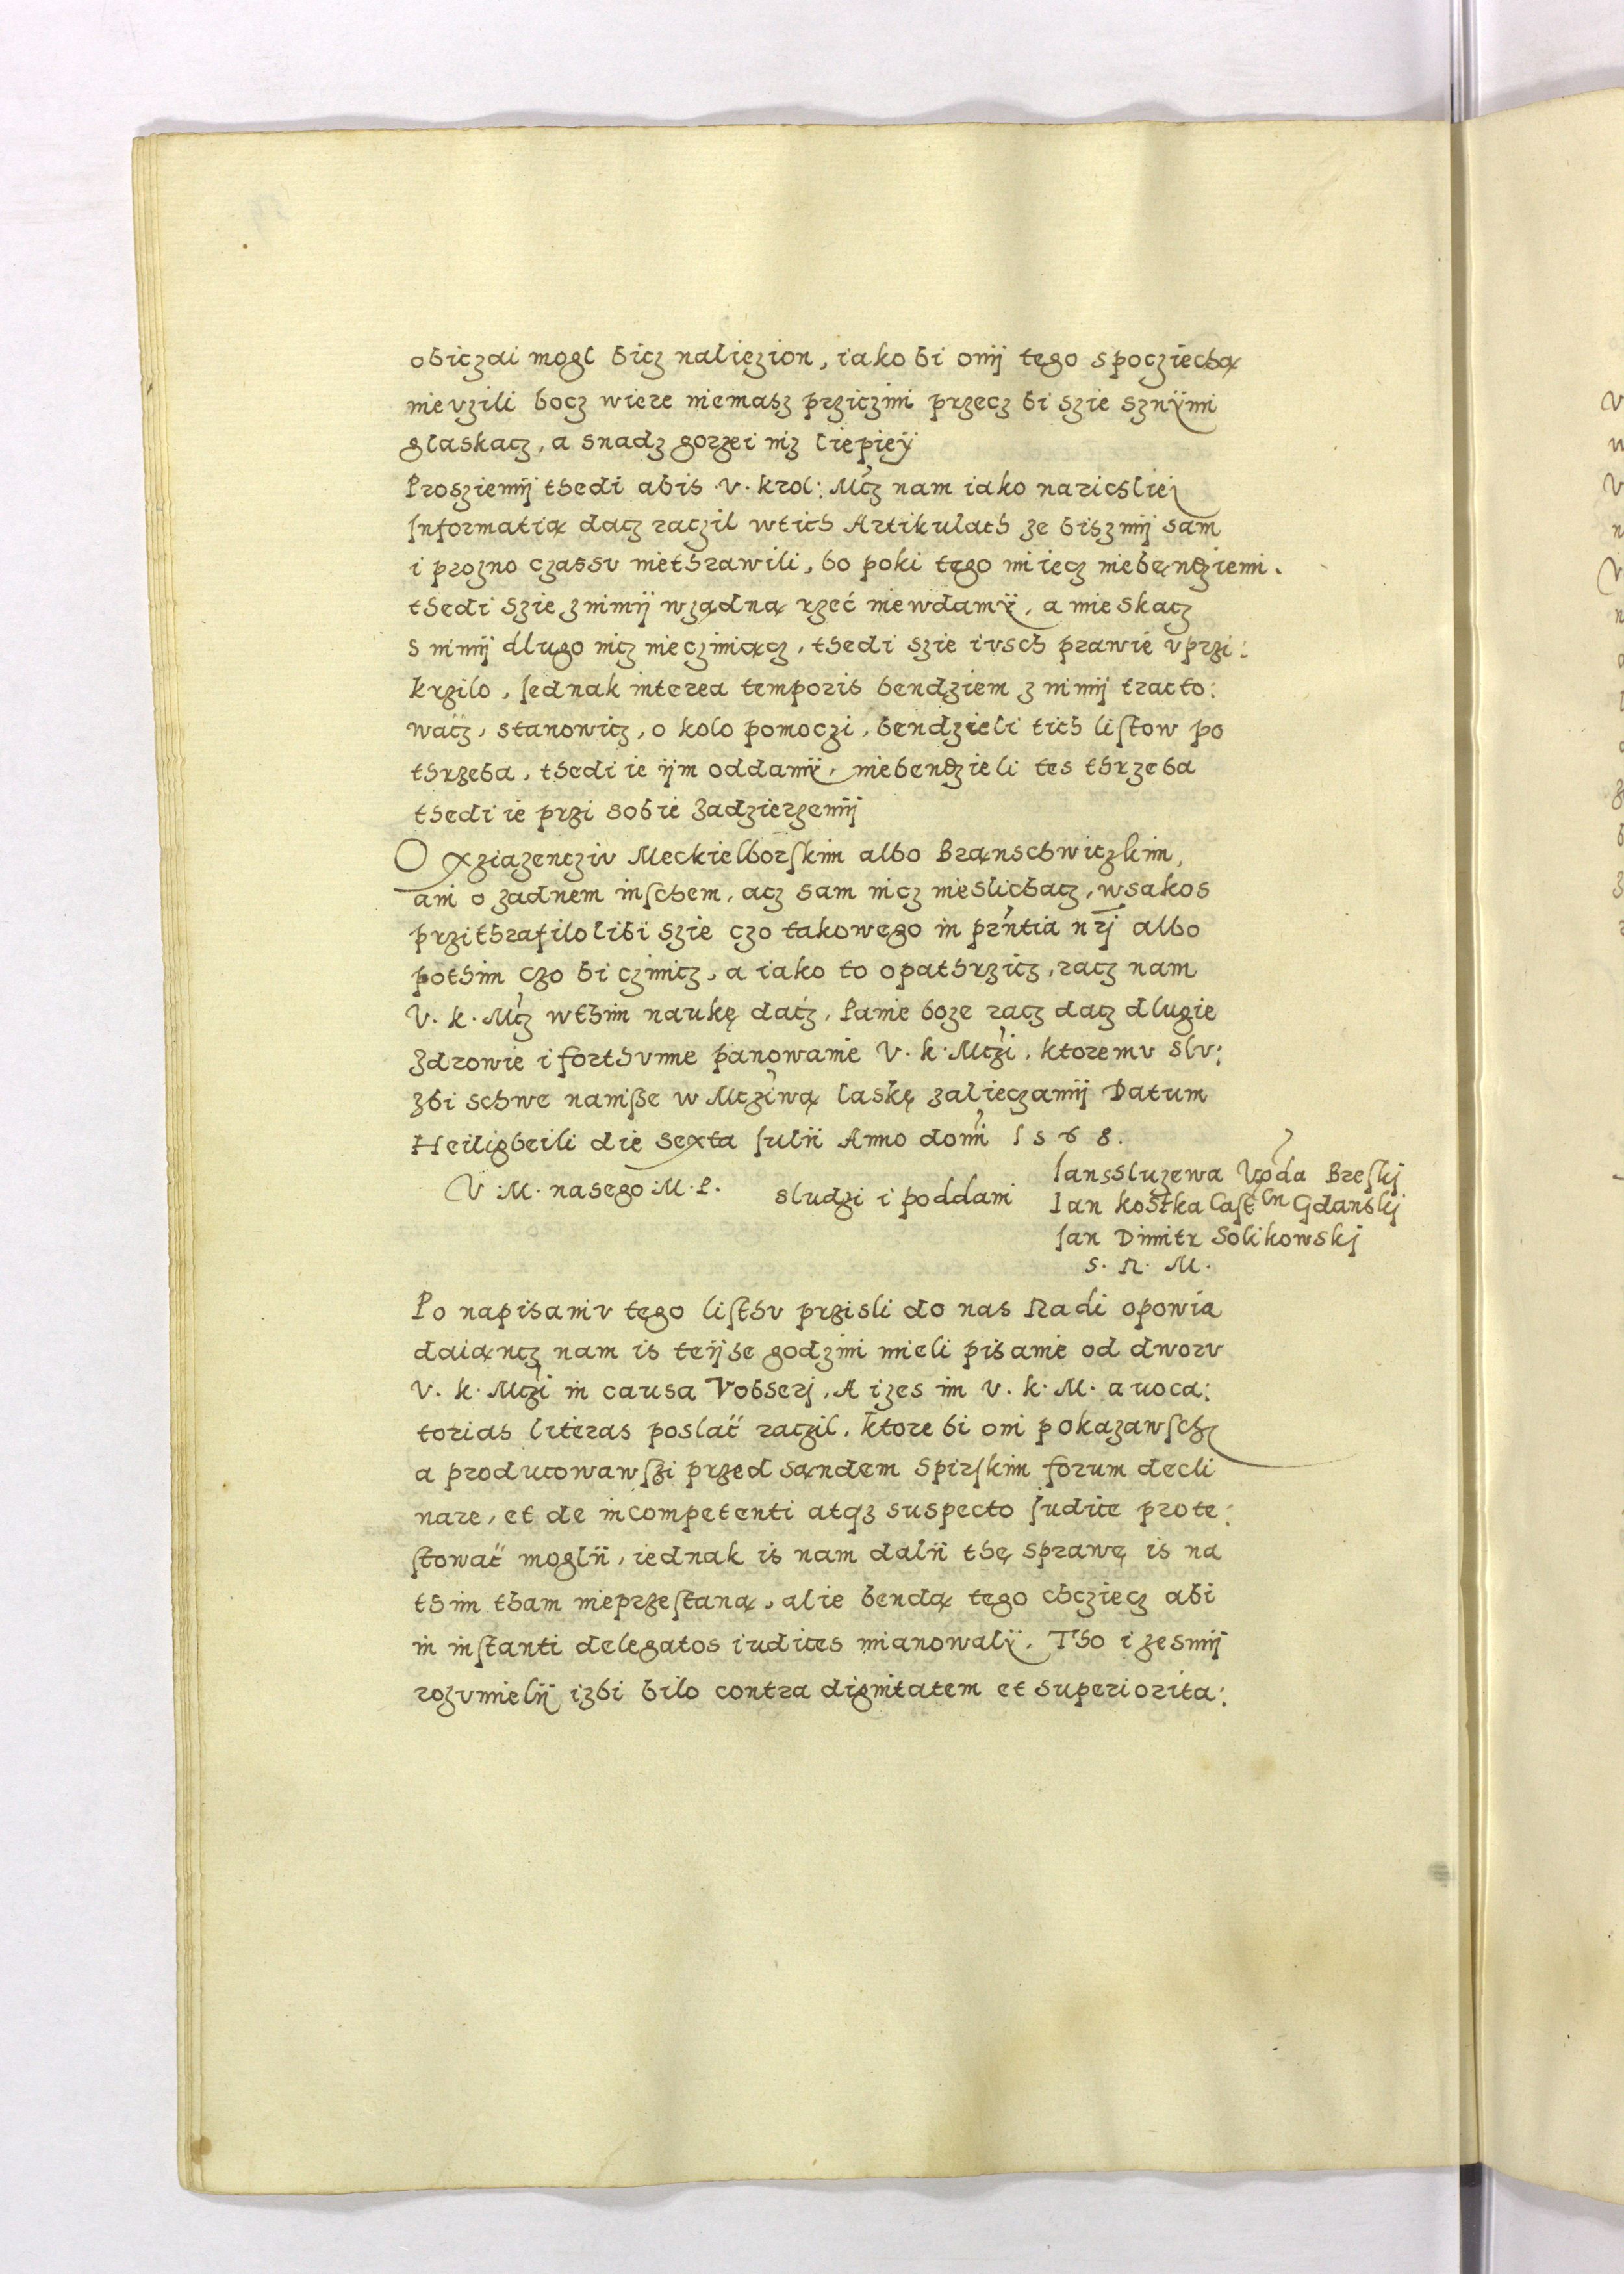 obiczai mogl bicz nalięzion, iako bi onij tego spocziechą
nievzili bocz wiere niemasz prziczini przecz bi szie sznÿmi
glaskacz, a snadz gorzei niz liepieÿ
Prosziemij thedi abis v. krol: Mcz nam iako narichliej
Informatią dacz raczil wtich Artikulach ze biszmij sam
i prozno czassv niethrawili, bo poki tego miiecz niebęndziemi.
thedi szie znimij wządną rzeć niewdamÿ, a mieskacz
s nimij dlugo nicz niecziniącz, thedi szie ivsch prawie vprzi:
krzilo, Jednak interea temporis bendziem z nimij tracto:
wacz, stanowicz, o kolo pomoczi, bendzieli tich liſtow po
thrzeba, thedi ie ÿm oddamÿ, niebendzieli tes thrzeba
thedi ie przi sobie zadzierzemij
O xziazencziv Meckielborſkim albo Branschwiczkim,
ani o zadnem inſchem, acz sam nicz nieslichacz, wsakos
przithrafilolibi szie czo takowego in prntia nrj albo
pothim czo bi czinicz, a iako to opathrzicz, racz nam
V. k. Mcz wthim naukę dacz, Panie boze racz dacz dlugie
zdrowie i forthunne panowanie V. k. Mczi, ktoremv slv:
zbi schwe naniſse w Mcziwą laskę zalieczamij Datum
Heiligbeili die sexta Julii Anno domi 1568.
V. M. nasego M. P. sludzi i poddani
Jan ssluzewa Vpda Breſkj
Jan Kostka Caſtln Gdanskj
Jan Dimitr Solikowskj
S. R. M.
Po napisaniv tego liſthv przisli do nas Radi opowia
daiąncz nam is teijse godzini mieli pisanie od dworv
V. k. Mczi in causa Vobserj, A izes im v. k. M. auoca:
torias literas poslać raczil, ktore bi oni pokazawſchz
a producowawſzi przed sąndem Spirſkim forum decli
nare, et de incompetenti atqz suspecto Judice prote:
ſtować moglii, iednak is nam dalii thę sprawę is na
thim tham nieprzeſtaną, alie bendą tego chcziecz abi
in inſtanti delegatos iudices mianowalÿ. Tho izesmij
rozvmielij izbi bilo contra dignitatem et superiorita: